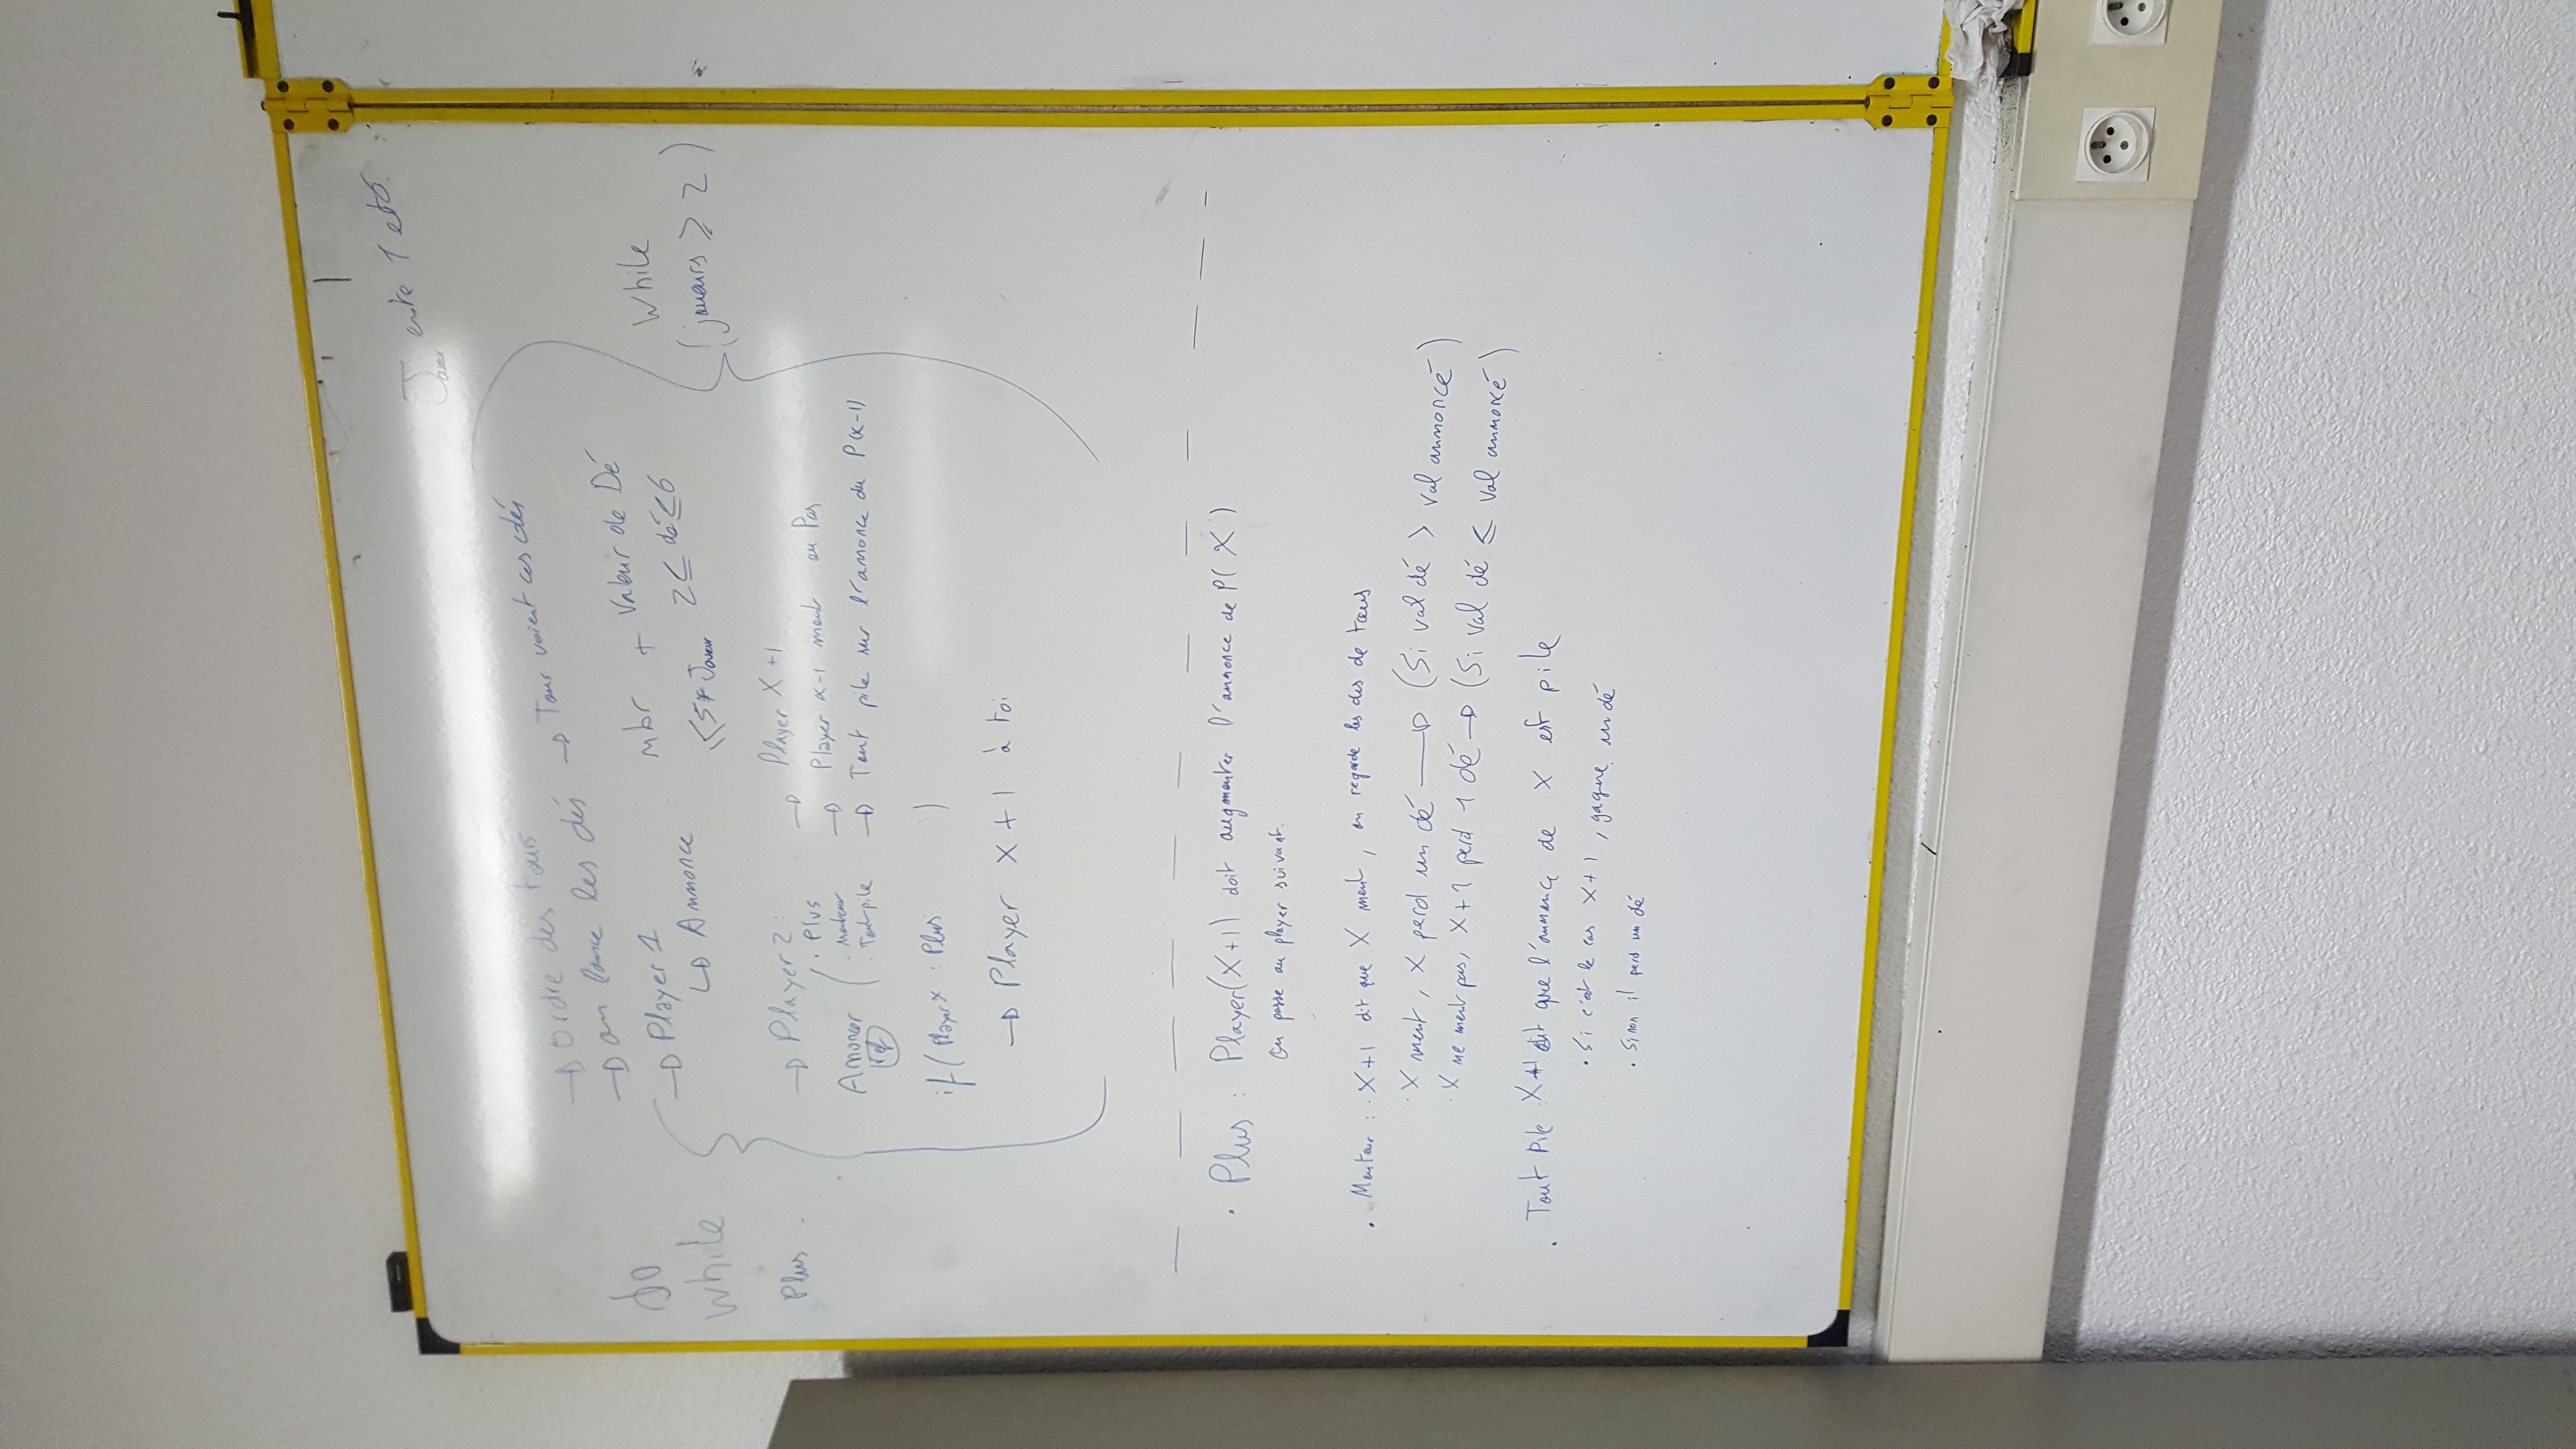 Joueur entre 1 et 6
→ Ordre des tours
→ on lance les dés → Tous voient ces dés
do
while
Plus
→ Player 1
↳ Annonce
nbr + Valeur de Dé
≤ 5* Joueur 2 ≤ dé ≤ 6
While
(joueurs ≥ 2)
→ Player 2 : → Player X + 1
Annoncer
. Plus
. Menteur → Player x-1 ment ou Pas
. Tout pile → Tout pile sur l'annonce du P(x-1)
if ( Player x : Plus )
→ Player X + 1 à toi
• Plus : Player(X+1) doit augmenter l'annonce de P( X )
On passe au player suivant.
• Menteur : . X+1 dit que X ment, on regarde les des de tous
. X ment, X perd un dé → (Si val dé > val annoncé)
. X ne ment pas, X+1 perd 1 dé → (Si val dé ≤ val annoncé)
• Tout Pile : X+1 dit que l'annonce de X est pile
• Si c'est le cas X+1, gagne un dé
• Sinon il perd un dé